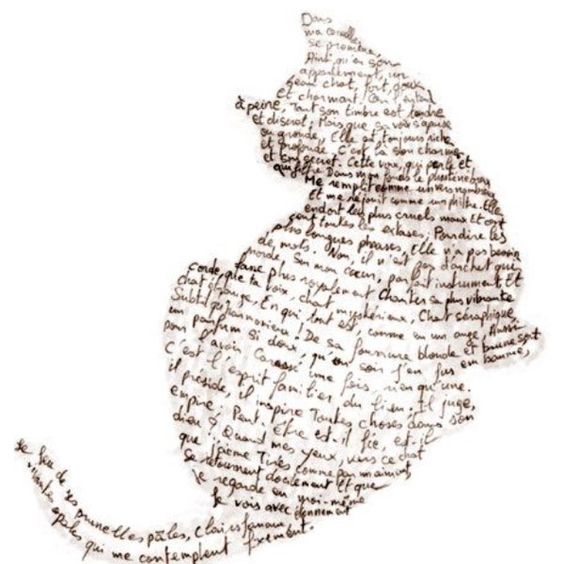 Dans
ma cervelle
se promène,
Ainsi qu'en son
appartement, un
beau chat, fort, doux
et charmant. Quand
à peine, Tant son timbre est tendre
et discret; Mais que sa voix s'apaise
ou gronde, Elle est toujours riche
et profonde. C'est là son charme
et son secret. Cette voix, qui perle et
qui filtre Dans mon fonds le plus ténébreux
Me remplit comme un vers nombreux
Et me réjouit comme un philtre. Elle
endort les plus cruels maux Et
contient toutes les extases; Pour dire les
plus longues phrases, Elle n'a pas besoin
de mots. Non, il n'est pas d'archet qui
morde Sur mon cœur, parfait instrument, Et
fasse plus royalement Chanter sa plus vibrante
corde, que ta voix, chat mystérieux, Chat séraphique
chat étrange, En qui tout est, comme en un ange, Aussi
Subtil qu'harmonieux! De sa fourrure blonde et brune sort
un parfum si doux, qu'un soir J'en fus embaumé,
pour avoir Caressé une fois, rien qu'une
C'est l'esprit familier du lieu; Il juge,
il préside, il inspire Toutes choses dans son
empire; Peut-être est-il fée, est-il
dieu? Quand mes yeux, vers ce chat
que j'aime Tirés comme par un aimant,
Se retournent docilement Et que
je regarde en moi-même
Je vois avec étonnement
Le feu de ses prunelles pâles, Clairs fanaux
vivantes opales qui me contemplent fixement.